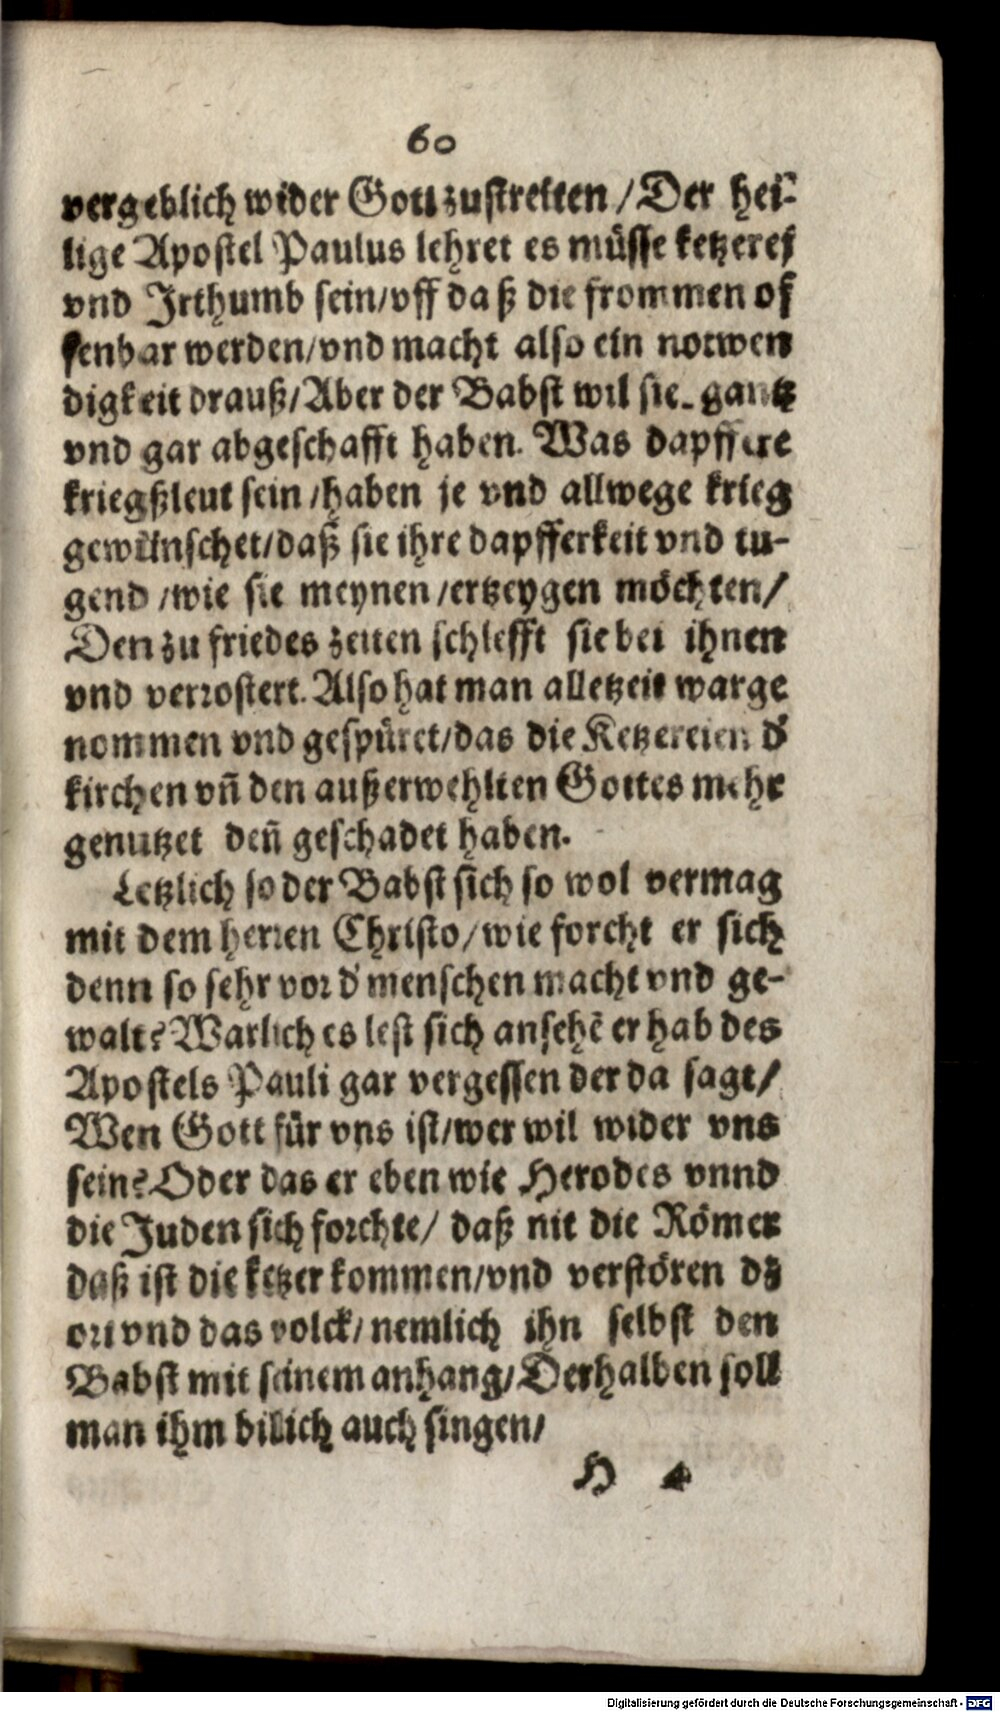 60
vergeblich wider Gott zustreiten / Der hei-
lige Apostel Paulus lehret es müsse ketzerej
vnd Jrthumb sein/vff daß die frommen of
fenbar werden/vnd macht also ein notwen
digkeit drauß/Aber der Babst wil sie gantz
vnd gar abgeschafft haben. Was dapffere
kriegßleut sein/haben je vnd allwege krieg
gewünschet/daß sie ihre dapfferkeit vnd tu-
gend/wie sie meynen/ertzeygen möchten/
Den zu friedes zeiten schlefft sie bei ihnen
vnd verrostert. Also hat man alletzeit warge
nommen vnd gespüret/das die Ketzereien d'
kirchen vñ den außerwehlten Gottes mehr
genutzet deñ geschadet haben.
Letzlich so der Babst sich so wol vermag
mit dem herren Christo/wie forcht er sich
denn so sehr vor d' menschen macht vnd ge-
walt? Warlich es lest sich ansehẽ er hab des
Apostels Pauli gar vergessen der da sagt/
Wen Gott für vns ist/wer wil wider vns
sein? Oder das er eben wie Herodes vnnd
die Juden sich forchte/ daß nit die Römer
daß ist die ketzer kommen/vnd verstören dz
ort vnd das volck/nemlich ihn selbst den
Babst mit seinem anhang/Derhalben soll
man ihm bilich auch singen/
H 4
Digitalisierung gefördert durch die Deutsche Forschungsgemeinschaft - DFG